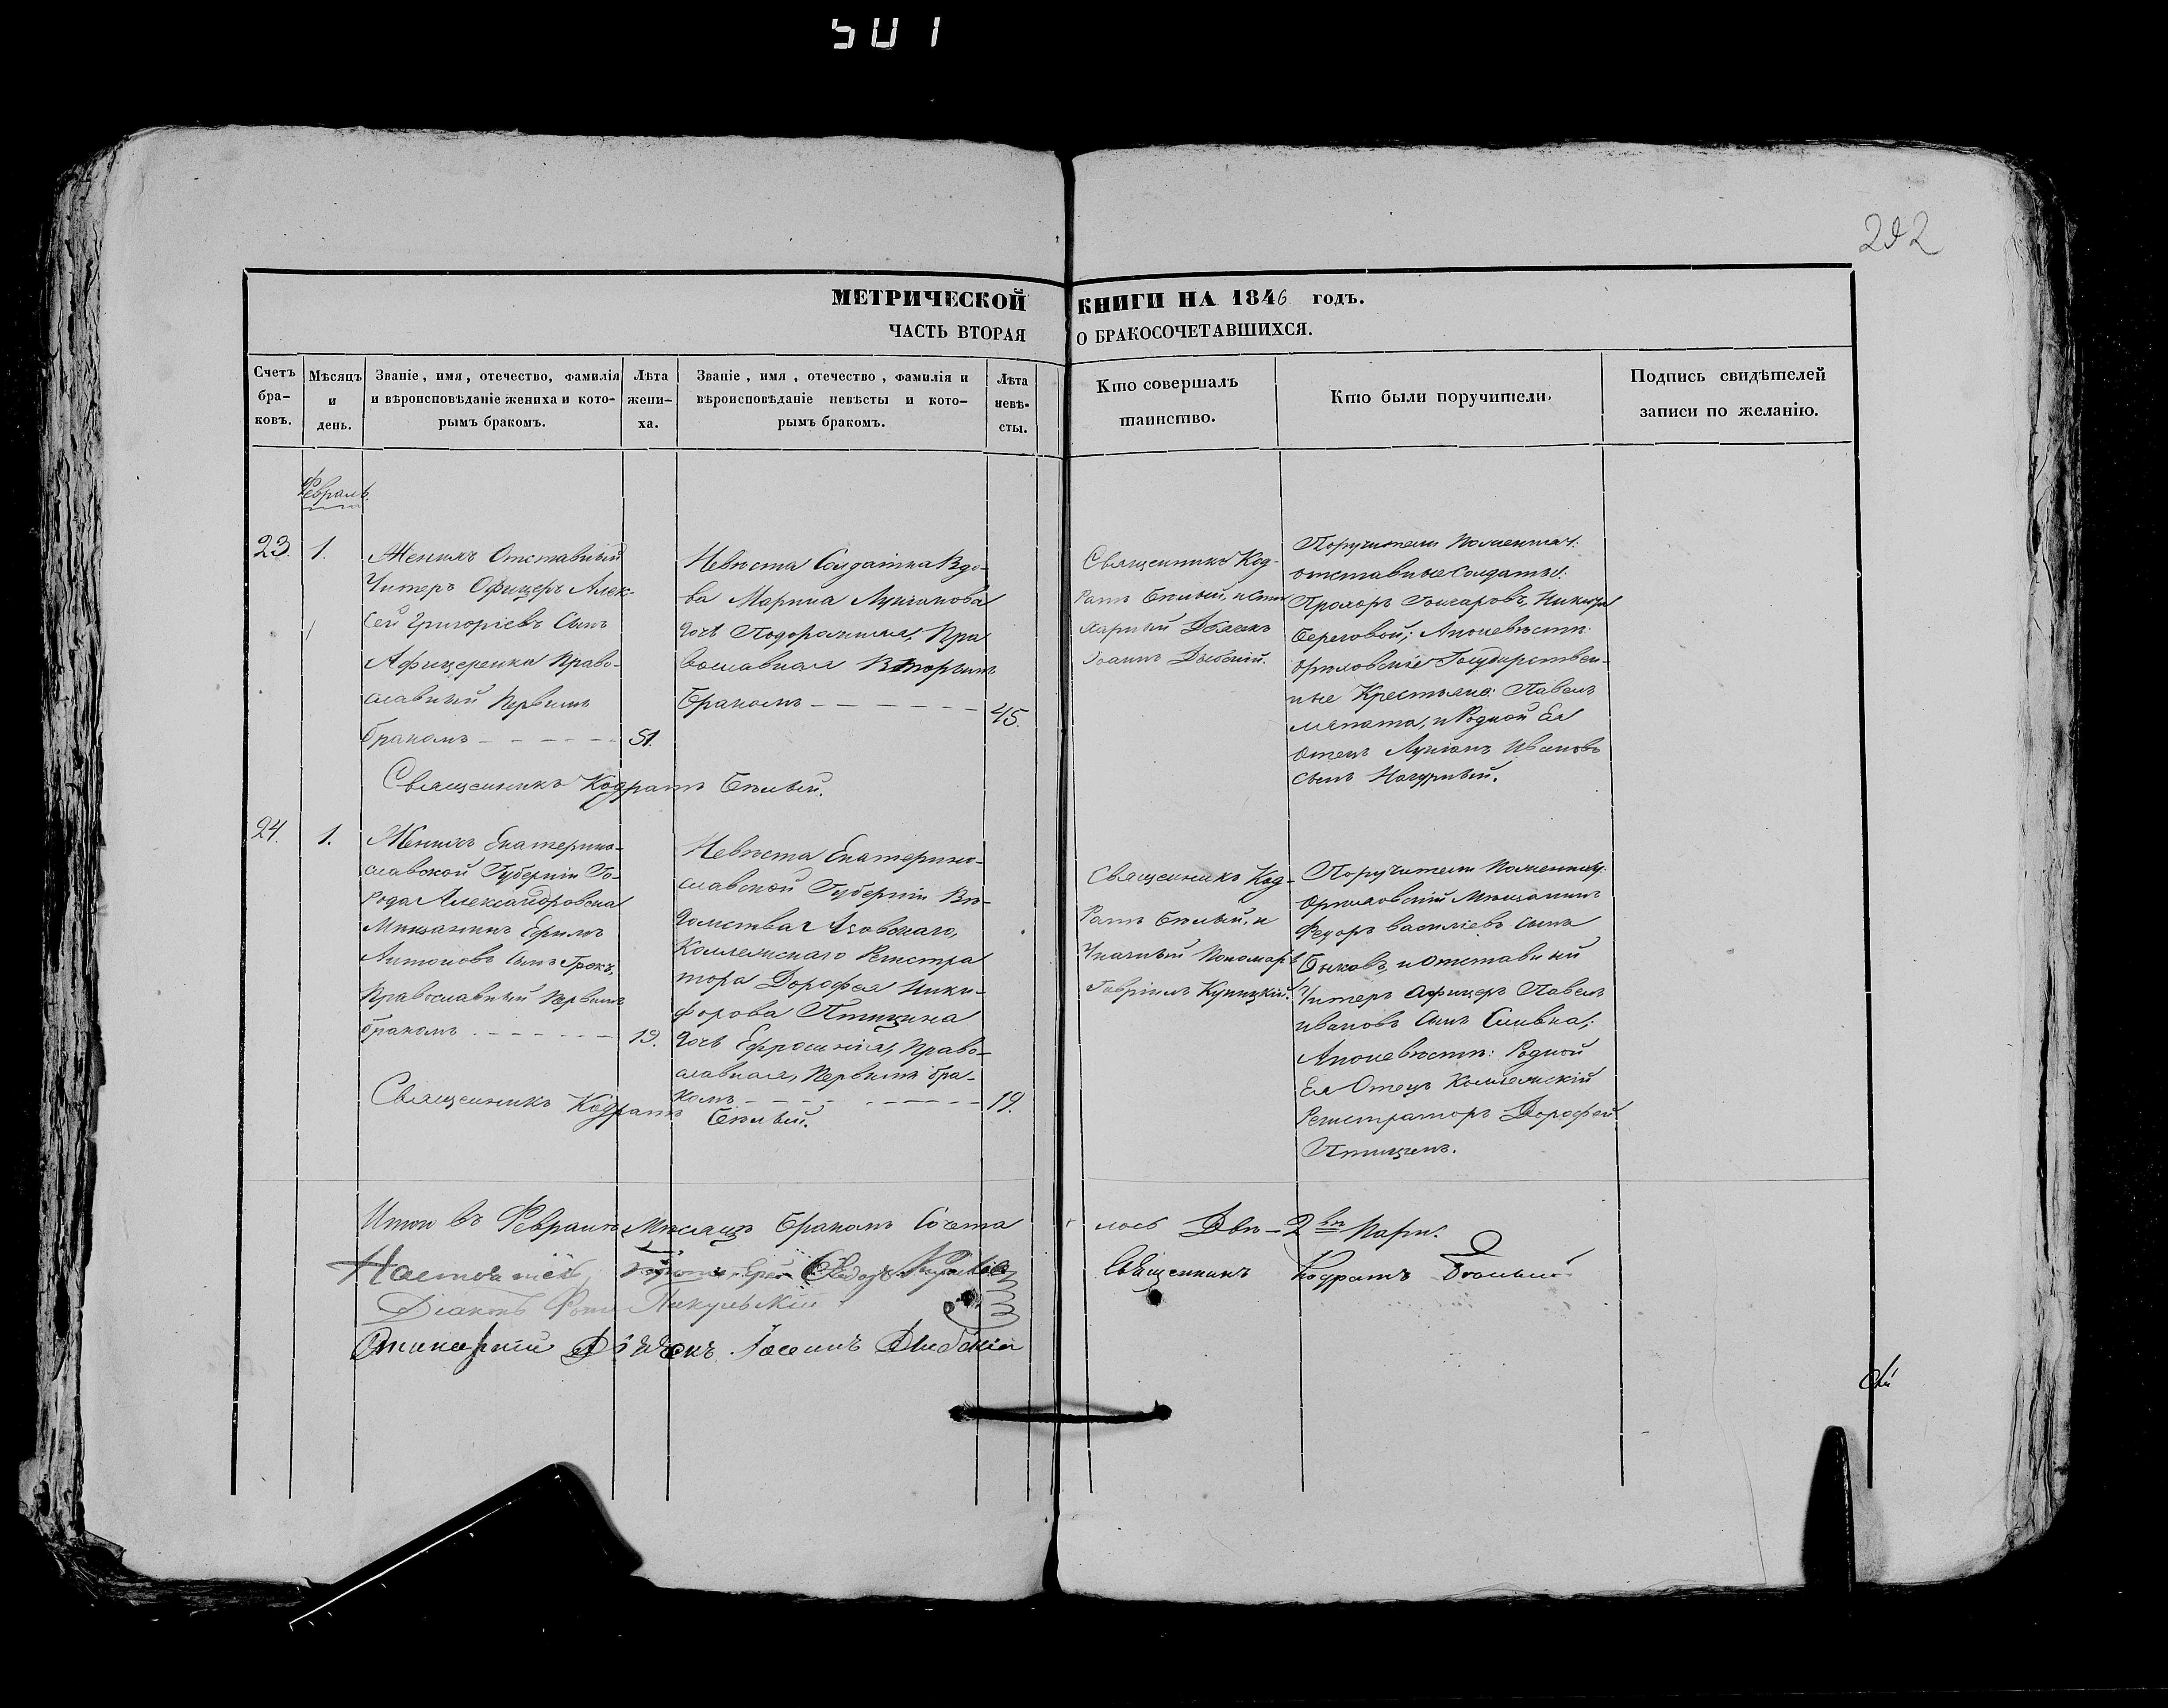 501
292
МЕТРИЧЕСКОЙ КНИГИ НА 1846 годъ.
ЧАСТЬ ВТОРАЯ О БРАКОСОЧЕТАВШИХСЯ.
Счетъ
бра-
ковъ.
Мѣсяцъ
и
день.
Званіе, имя, отечество, фамилія
и вѣроисповѣданіе жениха и кото-
рымъ бракомъ.
Лѣта
жени-
ха.
Званіе, имя, отечество, фамилія и
вѣроисповѣданіе невѣсты и кото-
рымъ бракомъ.
Лѣта
невѣ-
сты.
Кто совершалъ
таинство.
Кто были поручители.
Подпись свидѣтелей
записи по желанію.
Февраль.
23.
1.
Женихъ Отставный
Унтеръ Офицеръ Алек-
сей Григоріевъ Сынъ
Афицеренко Право-
славный Первымъ
бракомъ
51.
Невѣста Солдатка Вдо-
ва Марина Лукіанова
дочь Пра
вославная Вторымъ
бракомъ
45.
Священникъ Код-
ратъ Бѣлый, и Стих
арный Дьячекъ
Іоаннъ
Поручители По женихѣ:
отставные солдаты:
Прохоръ Гончаровъ, Никифоръ
Береговой; А по невѣстѣ:
орѣховскіе Государствен-
ные Крестьяне: Павелъ
и Родной Ея
отецъ Лукіанъ Ивановъ
сынъ
Священникъ Кодратъ Бѣлый.
24.
1.
Женихъ Екатерино-
славской Губерніи Го-
рода Александровска
Мѣщанинъ Ефимъ
Антоновъ Сынъ Грекъ,
Православный Первымъ
бракомъ
19.
Невѣста Екатерино-
славской Губерніи Вѣ-
домства Азовскаго,
Коллежскаго Регистра
тора Дорофея Ники-
форова Птицина
дочь Ефросинія, Право-
славная, Первымъ бра-
комъ
19.
Священникъ Код-
ратъ Бѣлый, и
Указный Пономарь
Гавріилъ Куницкій.
Поручители По женихѣ:
Орѣховскій Мѣщанинъ
Федоръ Василіевъ Сынъ
Быковъ, и отставный
Унтеръ Афицеръ Павелъ
Ивановъ Сынъ Сливка;
А по невѣстѣ: Родной
Ея Отецъ Коллежскій
Регистраторъ Дорофей
Птицынъ.
Священникъ Кодратъ Бѣлый.
Итого въ Февралѣ Мѣсяцѣ бракомъ Сочета
лось Двѣ – 2 вѣ Пары.
Священникъ Кодратъ Бѣлый
Діаконъ
Стихарный Дьячекъ